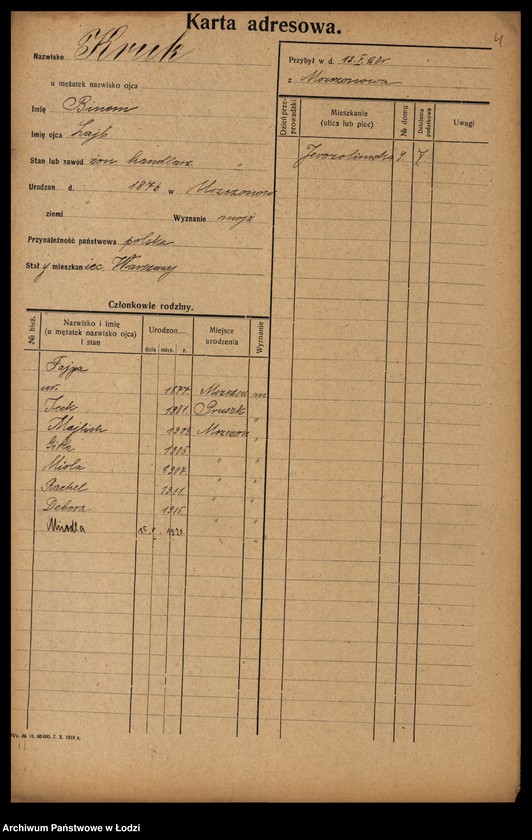 Karta adresowa.
4
Nazwisko Kruk
u mężatek nazwisko ojca
Imię Binem
Imię ojca Lajb
Stan lub zawód żon handlarz
Urodzon d. 1876 w Mszczonow
ziemi Wyznanie mojż
Przynależność państwowa polska
Stały mieszkaniec Warszawy
Przybył w d.
z Mszczonowa
Dzień przeprowadzki
Mieszkanie (ulica lub plac)
№ domu
Dzielnica podatkowa
Uwagi
Jerozolimska 4. 7.
Członkowie rodziny.
№ bież.
Nazwisko i imię (u mężatek nazwisko ojca) i stan
Urodzon
dnia mies. r.
Miejsce urodzenia
Wyznanie
Fajga
ur. 1877 m
Icek 1901 "
Majlich 1903 "
Gitla 1905 " "
1907 " "
Rachel 1911 " "
Debora 1915 " "
Mindla " "
7. X. 1919 r.
Archiwum Państwowe w Łodzi